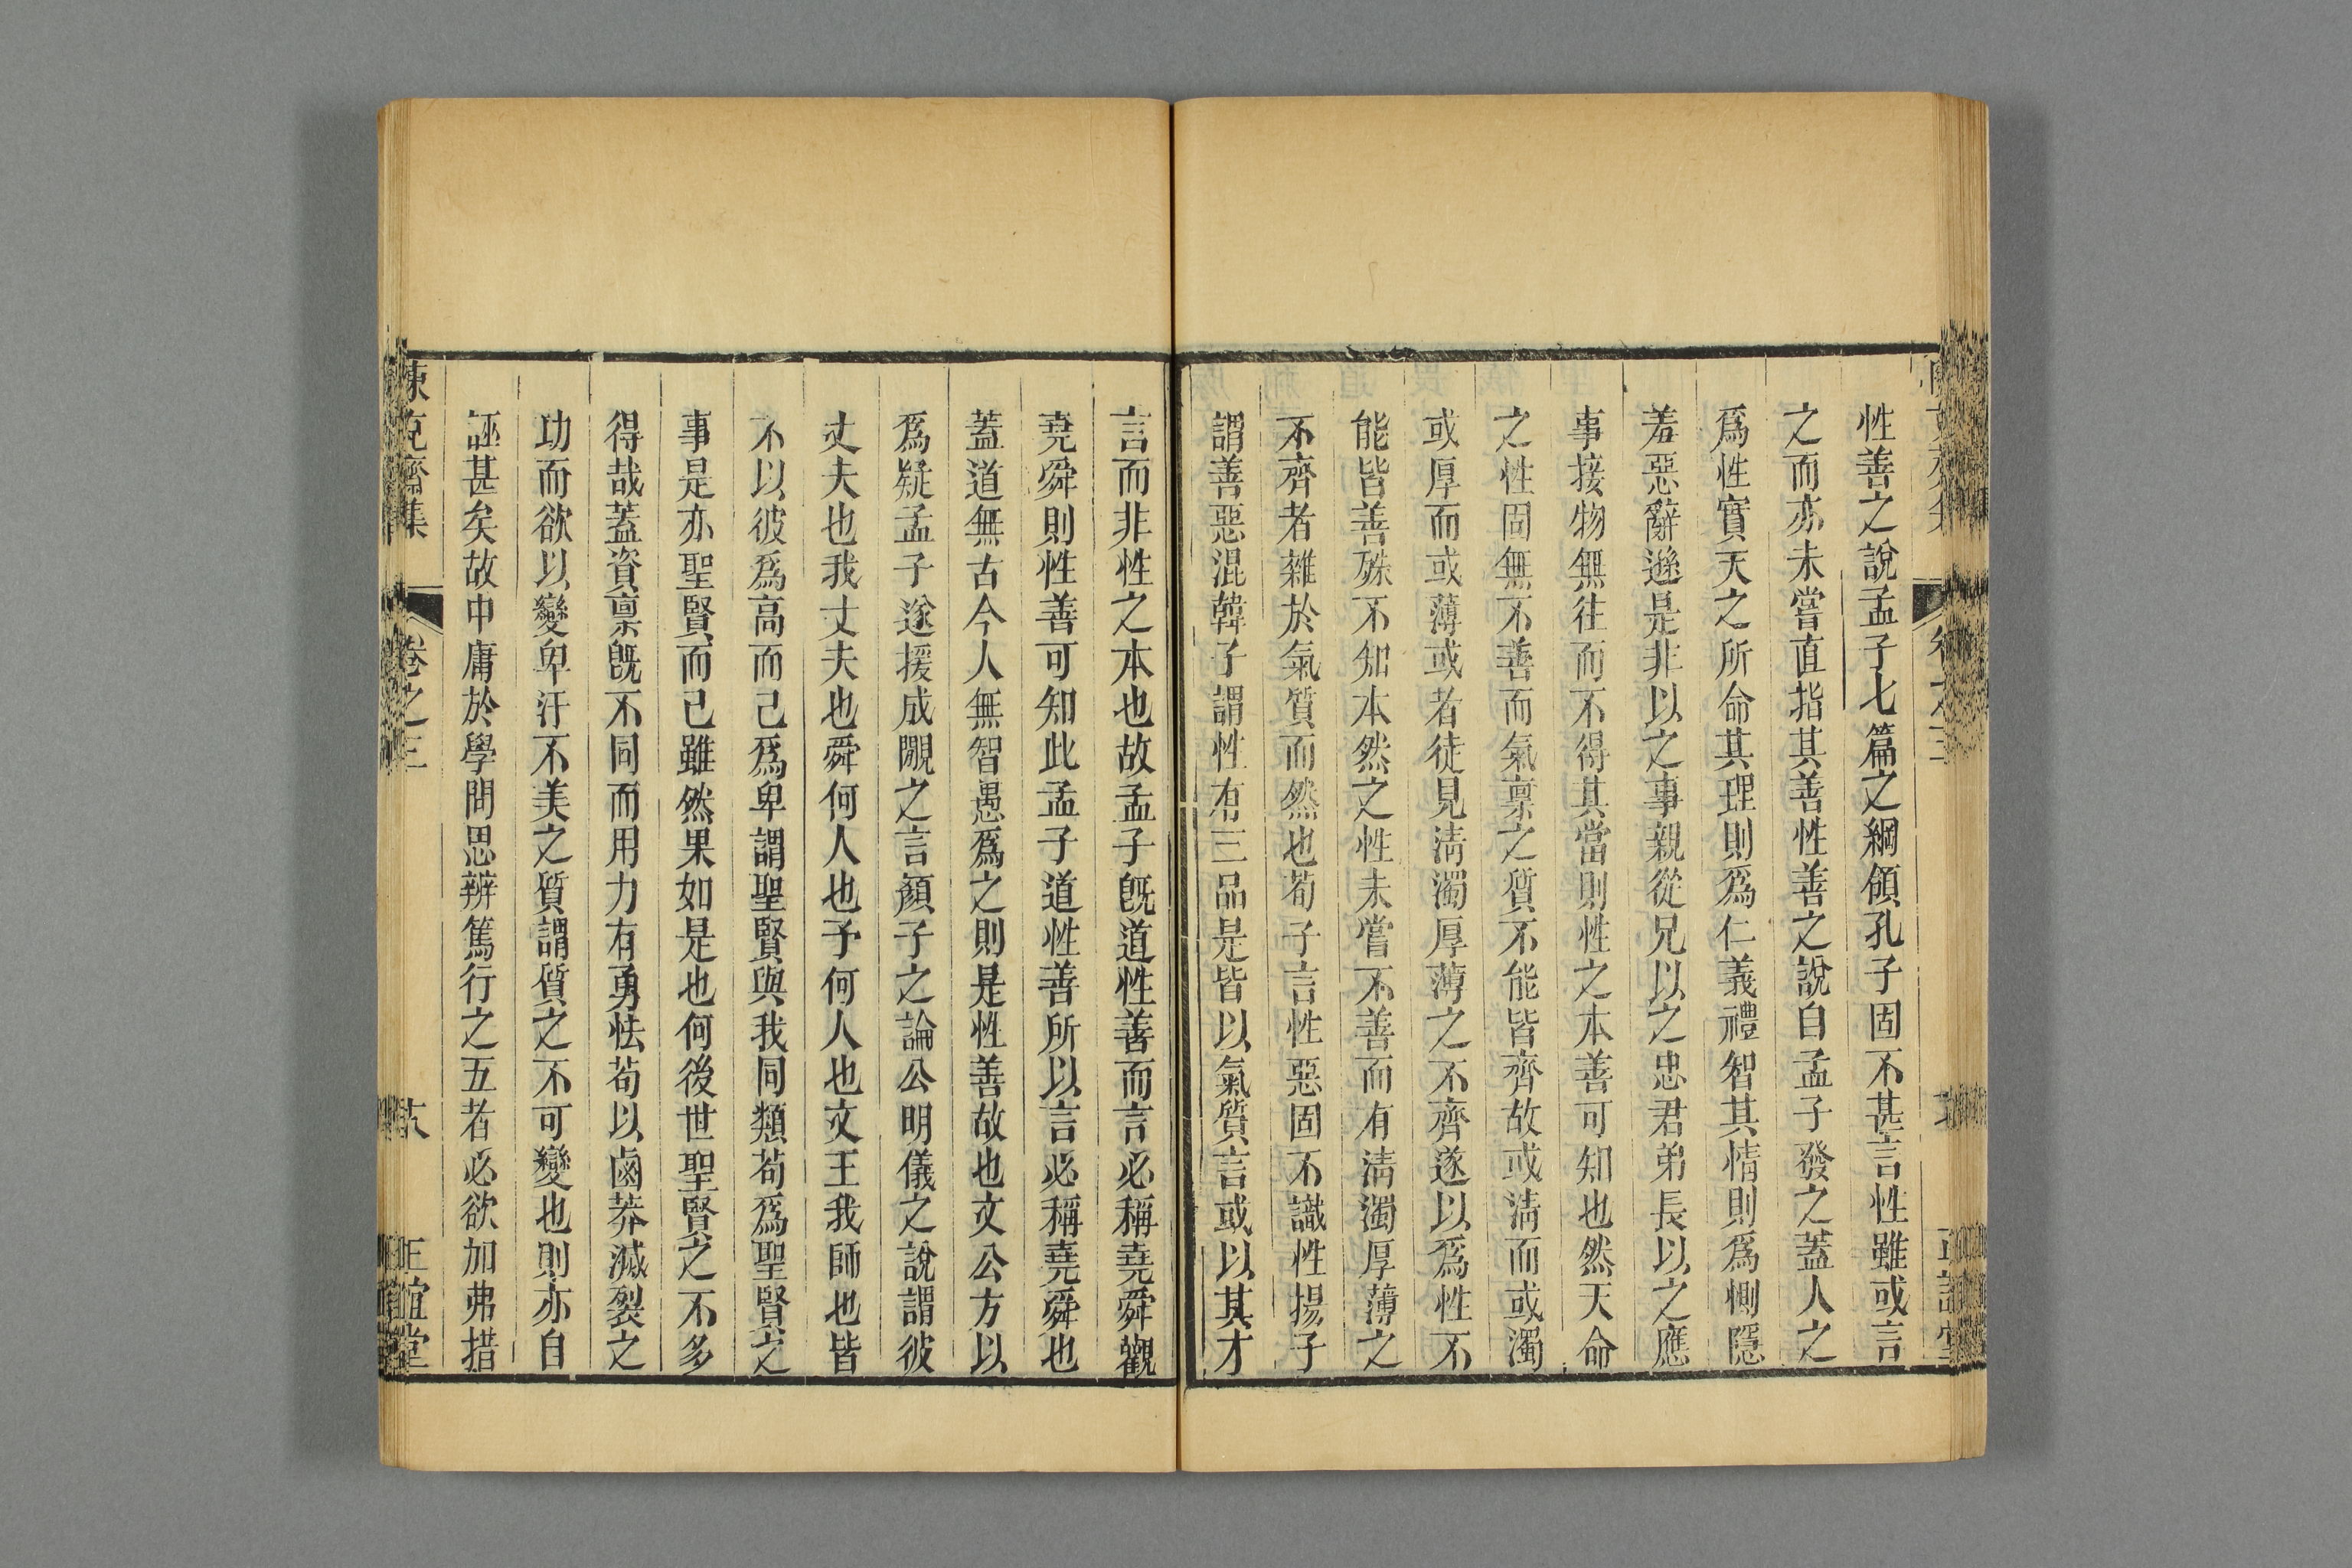 性善之說孟子七篇之綱領孔子固不甚言性雖或言
之而亦未嘗直指其善性善之說自孟子發之蓋人之
爲性實天之所命其理則爲仁義禮智其情則爲惻隱
羞惡辭遜是非以之事親從兄以之忠君弟長以之應
事接物無往而不得其當則性之本善可知也然天命
之性固無不善而氣禀之質不能皆齊故或淸而或濁
或厚而或薄或者徒見淸濁厚薄之不齊遂以爲性不
能皆善殊不知本然之性未嘗不善而有淸濁厚薄之
不齊者雜於氣質而然也荀子言性惡固不識性揚子
謂善惡混韓子謂性有三品是皆以氣質言或以其才
言而非性之本也故孟子旣道性善而言必稱堯舜觀
堯舜則性善可知此孟子道性善所以言必稱堯舜也
蓋道無古今人無智愚爲之則是性善故也文公方以
爲疑孟子遂援成覵之言顏子之論公明儀之說謂彼
丈夫也我丈夫也舜何人也予何人也文王我師也皆
不以彼爲高而己爲卑謂聖賢與我同類苟爲聖賢之
事是亦聖賢而已雖然果如是也何後世聖賢之不多
得哉蓋資禀旣不同而用力有勇怯苟以鹵莽滅裂之
功而欲以變卑汙不美之質謂質之不可變也則亦自
誣甚矣故中庸於學問思辨篤行之五者必欲加弗措
陳克齋集
卷之三
六
正誼堂